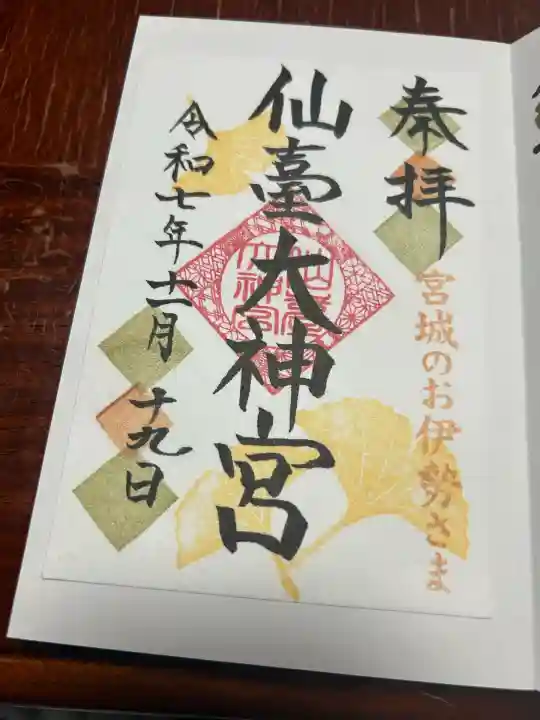 奉拝
宮城のお伊勢さま
仙臺大神宮
令和七年十一月十九日